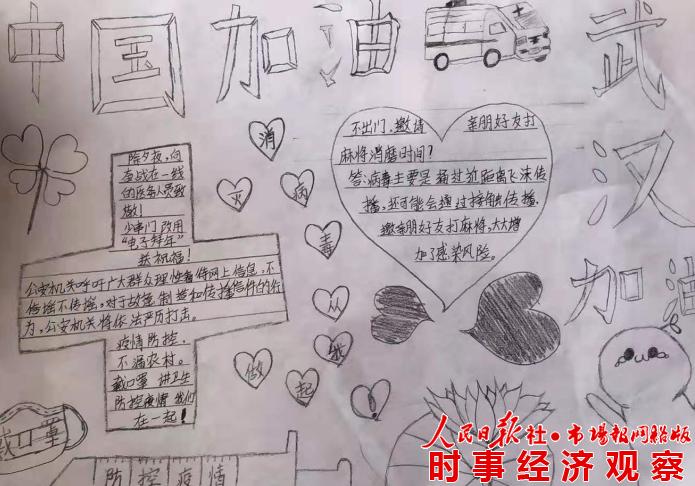 中国加油
武汉加油
消灭病毒从我做起!
除夕夜,向
奋战在一线
的医务人员致
敬!
少串门 改用
“电子拜年”
送祝福!
公安机关呼吁广大群众理性看待网上信息,不
信谣不传谣。对于故意制造和传播信件的行
为,公安机关将依法严厉打击。
疫情防控,
不漏农村。
戴口罩 讲卫生
防控疫情 我们
在一起!
不出门,邀请 亲朋好友打
麻将消磨时间?
答:病毒主要是通过近距离飞沫传
播,还可能会通过接触传播,
邀亲朋好友打麻将,大大增
加了感染风险。
戴口罩
防控疫情
人民日报社·市场报网络版
时事经济观察